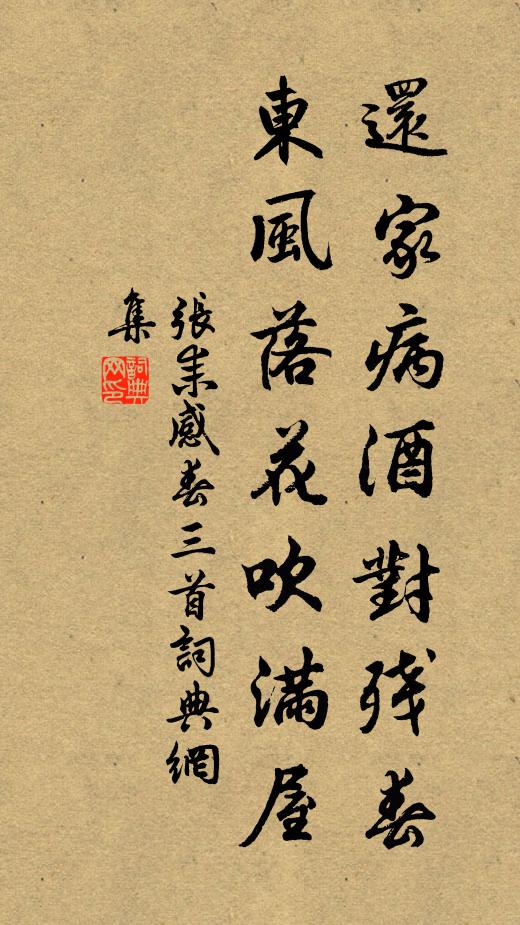 還家病酒對残春
東風落花吹滿屋
張耒感春三首詞典網
集
詞典
网印